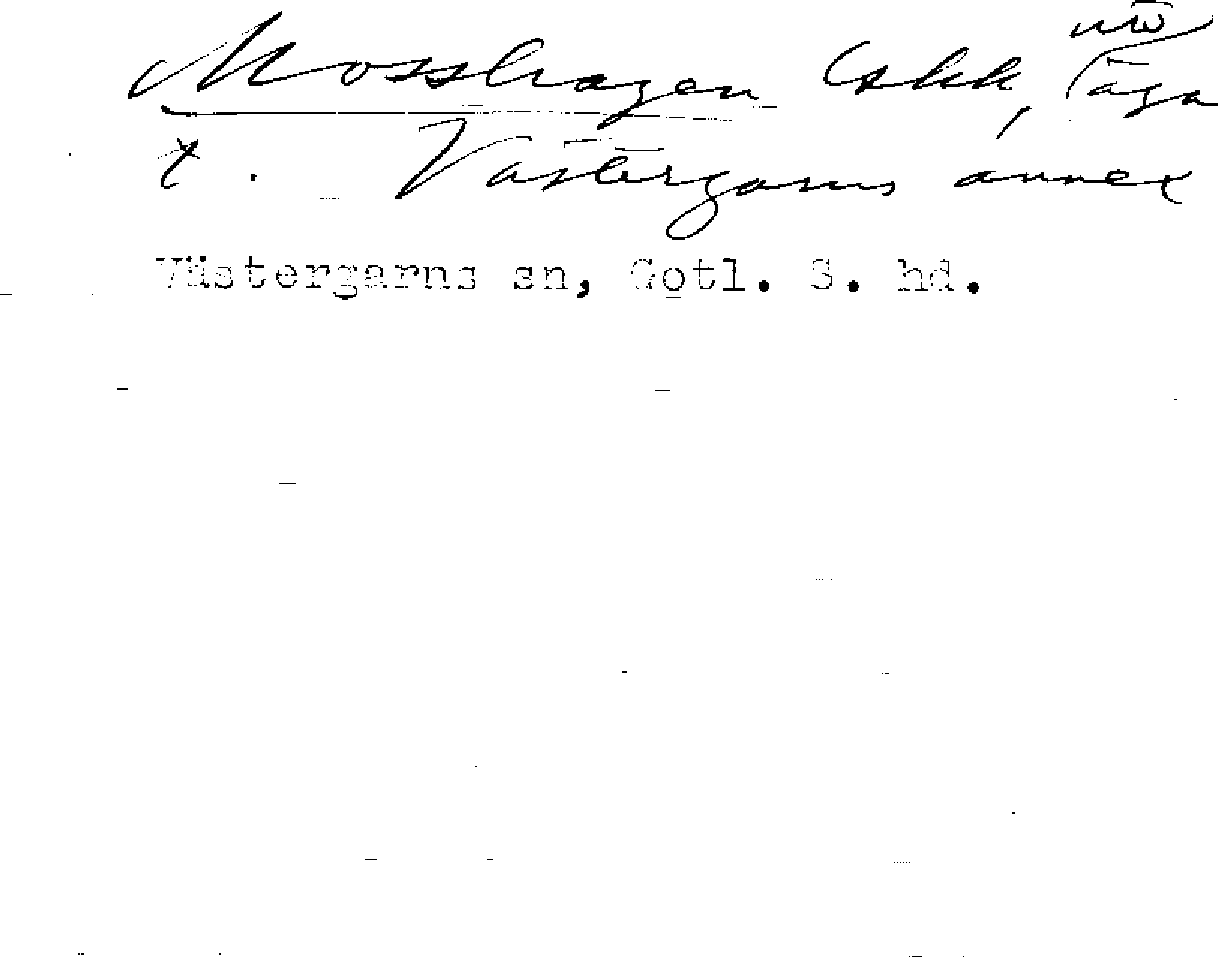 utö
Mosshagen Cskk, äga
t. Västergarns annex
Västergarns sn, Gotl. S. hd.